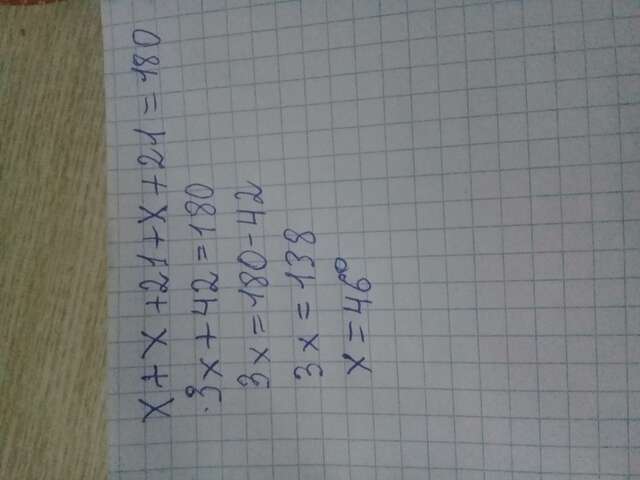 x + x + 21 + x + 21 = 180
3x + 42 = 180
3x = 180 - 42
3x = 138
x = 46°